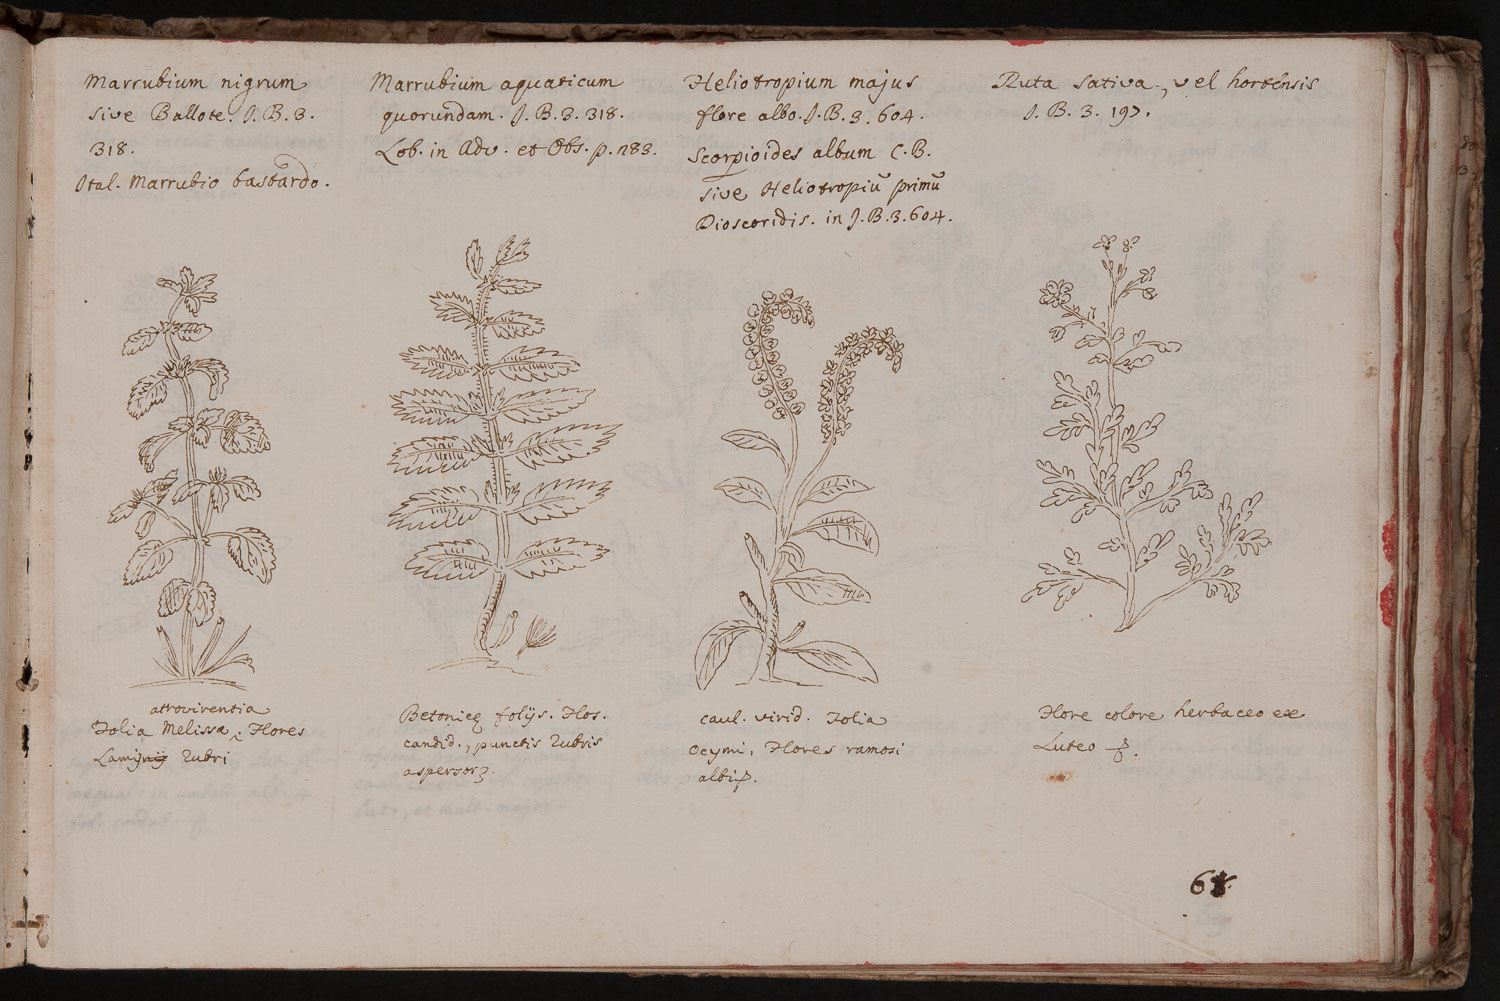 Marrubium nigrum
sive Ballote. J. B. 3.
318.
Ital. Marrubio bastardo.
Marrubium aquaticum
quorundam. J. B. 3. 318.
Lob. in Adv. et Obs. p. 283.
Heliotropium majus
flore albo. J. B. 3. 604.
Scorpioides album C. B.
sive Heliotropiū primū
Dioscoridis. in J. B. 3. 604.
Ruta sativa, vel hortensis
J. B. 3. 197.
atrovirentia
Folia Melissæ, Flores
Lamij rubri
Betonicę folijs. Flos.
candid., punctis rubris
aspersor
caul. virid. Folia
Ocymi, Flores ramosi
albi
Flore colore herbaceo ex
Luteo
6